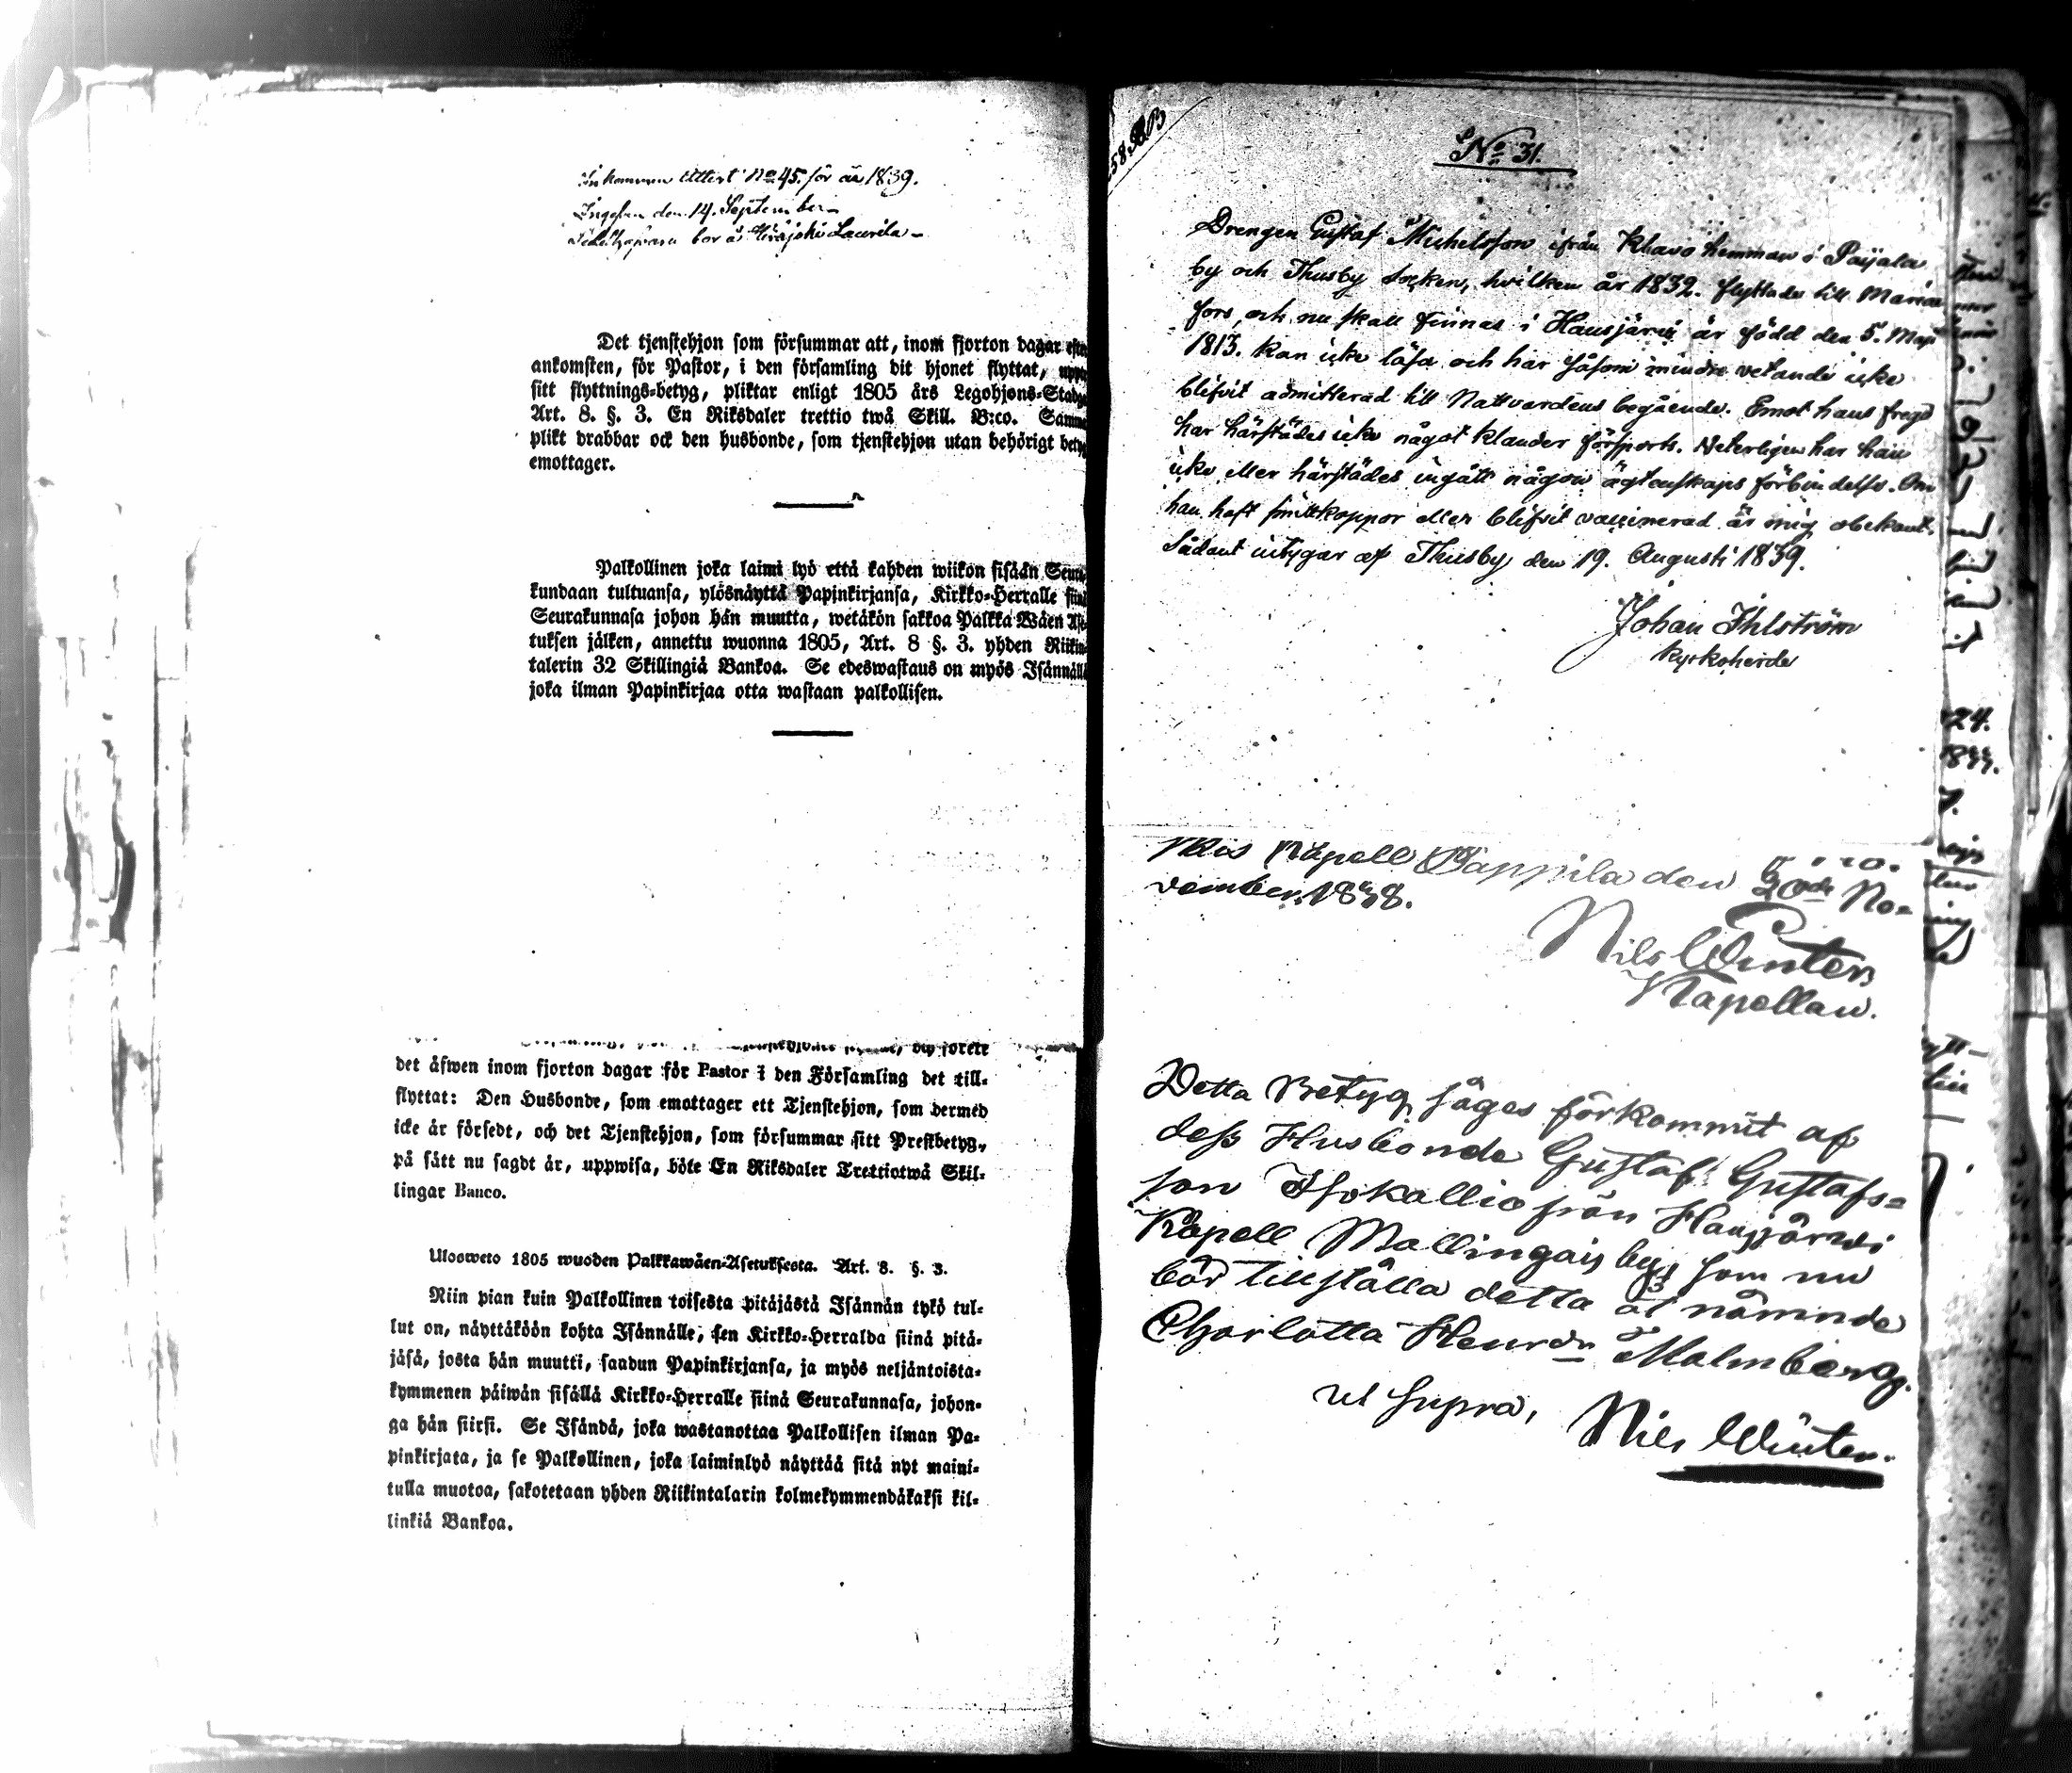 Inkommen Attest No 45. för år 1839.
Ingifven den 14. September
bor å Laurila
Det tjenstehjon som försummar att, inom fjorton dagar efter
ankomsten, för Pastor, i den församling dit hjonet flyttat,
sitt flyttnings-betyg, pliktar enligt 1805 års Legohjons-Stadga
Art. 8. §. 3. En Riksdaler trettio twå Skill. B:co. Samma
plikt drabbar ock den husbonde, som tjenstehjon utan behörigt betyg
emottager.
Palkollinen joka laimi lyö että kahden wiikon sisään Seura-
kundaan tultuansa, ylösnäyttä Papinkirjansa, Kirkko-Herralle siinä
Seurakunnasa johon hän muutta, wetäkön sakkoa Palkka Wäen Ase-
tuksen jälken, annettu wuonna 1805, Art. 8 §. 3. yhden Riikin-
talerin 32 Skillingiä Bankoa. Se edeswastaus on myös Isännällä
joka ilman Papinkirjaa otta wastaan palkollisen.
det äfwen inom fjorton dagar för Pastor i den Församling det till-
flyttat: Den Husbonde, som emottager ett Tjenstehjon, som dermed
icke är försedt, och det Tjenstehjon, som försummar sitt Prestbetyg,
på sätt nu sagdt är, uppwisa, böte En Riksdaler Trettiotwå Skil-
lingar Banco.
Ulosweto 1805 wuoden Palkkawäen-Asetuksesta. Art. 8. §. 3.
Niin pian kuin Palkollinen toisesta pitäjästä Isännän tykö tul-
lut on, näyttäköön kohta Isännälle, sen Kirkko-Herralda siinä pitä-
jäsä, josta hän muutti, saadun Papinkirjansa, ja myös neljäntoista-
kymmenen päiwän sisällä Kirkko-Herralle siinä Seurakunnasa, johon-
ga hän siirsi. Se Isändä, joka wastanottaa Palkollisen ilman Pa-
pinkirjata, ja se Palkollinen, joka laiminlyö näyttää sitä nyt maini-
tulla muotoa, sakotetaan yhden Riikintalarin kolmekymmendäkaksi kil-
linkiä Bankoa.
No 31.
Drengen Gustaf Michelsson ifrån Klavo hemman i Paijala
by och Thusby Socken, hvilken år 1832. flyttade till Maria
fors, och nu skall finnas i Hausjärvi är född den 5. Maji
1813. kan icke läsa och har såsom mindre vetande icke
blifvit admitterad till Nattvardens begående. Emot hans fregd
har härstädes icke något klander försports. Veterligen har han
icke eller härstädes ingått någon ägtenskaps förbindelse. Om
han haft smittkoppor eller blifvit vaccinerad är mig obekant.
Sådant intygar af Thusby den 19. Augusti 1839.
Johan Ihlström
Kyrkoherde
Kapell Pappila den 30de No-
vember 1838.
Nils Winter
Kapellan.
Detta Betyg säges förkommit af
dess Husbonde Gustaf Gustafs-
son Isokallio från Hausjärvi
Kapell Mallingais by, som nu
bör tillställa detta åt nämnde
Charlotta Henrdr Malmberg.
ut supra,
Nils Winter.
24.